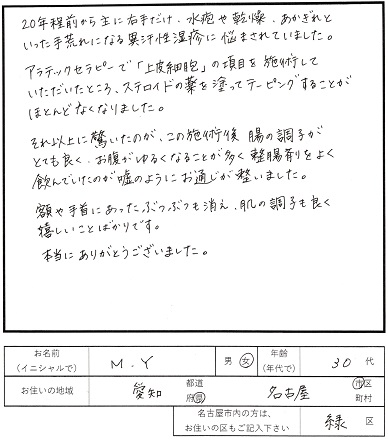 20年程前から主に右手だけ、水疱や乾燥、あかぎれと
いった手荒れになる異汗性湿疹に悩まされていました。
アラテックセラピーで「上皮細胞」の項目を施術して
いただいたところ、ステロイドの薬を塗ってテーピングすることが
ほとんどなくなりました。
それ以上に驚いたのが、この施術後 腸の調子が
とても良く、お腹がゆるくなることが多く整腸剤をよく
飲んでいたのが嘘のようにお通じが整いました。
額や手首にあったぶつぶつも消え、肌の調子も良く
嬉しいことばかりです。
本当にありがとうございました。
お名前
(イニシャルで) M.Y 男 女 年齢
(年代で) 30代
お住いの地域 愛知 都道
府県 名古屋 市区
町村
名古屋市内の方は、
お住いの区もご記入下さい 緑 区